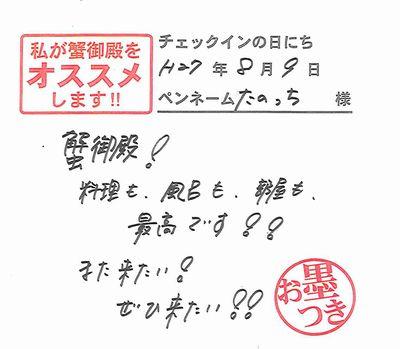 私が蟹御殿を
オススメ
します!!
チェックインの日にち
H27年8月9日
ペンネームたのっち 様
蟹御殿!
料理も、風呂も、部屋も、
最高です!!
また来たい!
ぜひ来たい!!
お墨つき